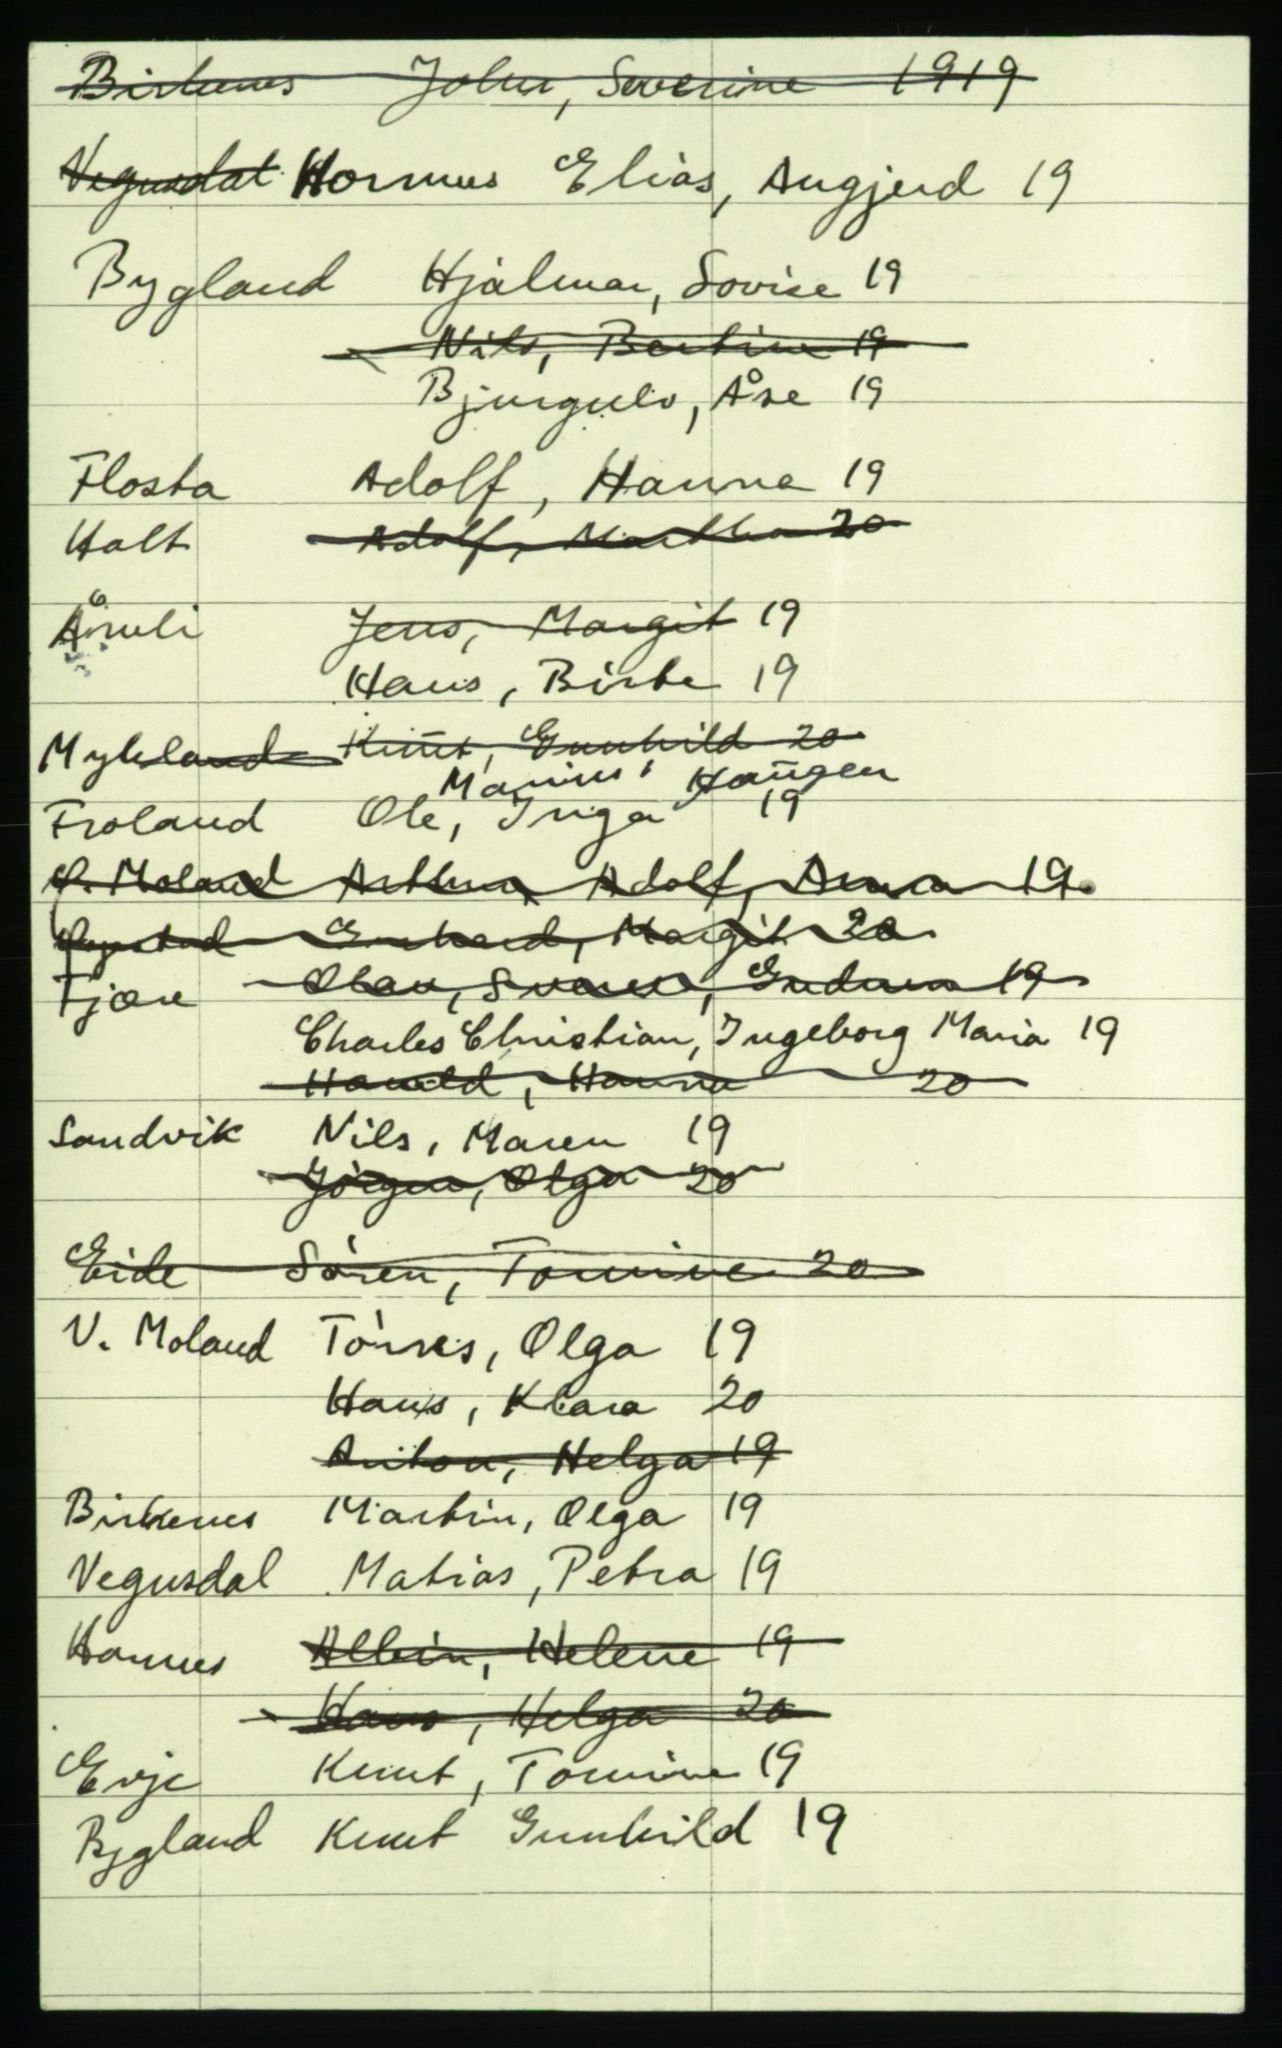 Birkenes John, Severine 1919
Vegusdal Hornnes Elias, Angjerd 19
Bygland Hjalmar, Lovise 19
Nils, Bertine 19
Bjurgulv, Åse 19
Flosta Adolf, Hanna 19
Holt Adolf, Martha 20
Åmli Jens, Margit 19
Hans, Birte 19
Mykland Knut, Gunhild 20
Marius, Haugen
Froland Ole, Inga 19
Ø. Moland Arthur Adolf, Anna 19
Margit 20
Fjære Olav, Gudrun 19
Charles Christian, Ingeborg Maria 19
Harald, Hanna 20
Sandvik Nils, Maren 19
Jörgen, Olga 20
Eide Sören, Tomine 20
V. Moland Törres, Olga 19
Hans, Klara 20
Anton, Helga 19
Birkenes Martin, Olga 19
Vegusdal Matias, Petra 19
Hornnes Albin, Helene 19
Hans, Helga 20
Evje Knut, Tomine 19
Bygland Knut Gunhild 19